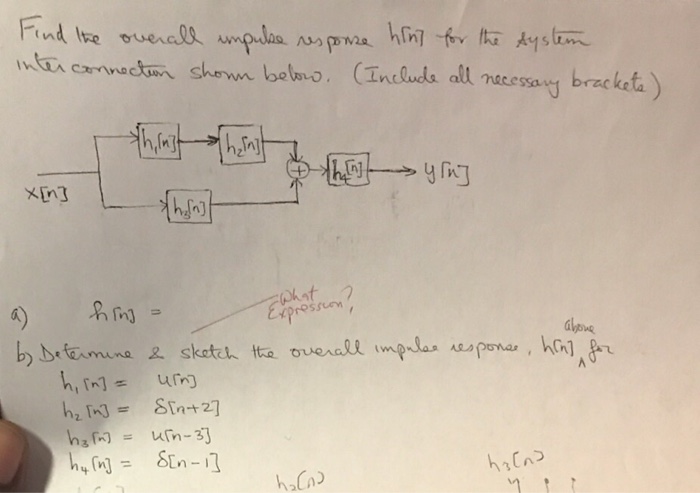 Find the overall impulse response h[n] for the system
interconnection shown below. (Include all necessary brackets)
h₁[n] h₂[n]
+ h₄[n] y[n]
x[n]
h₃[n]
What
a) h[n] = Expression?
above
b) Determine & sketch the overall impulse response, h[n] ^ for
h₁[n] = u[n]
h₂[n] = δ[n+2]
h₃[n] = u[n-3]
h₄[n] = δ[n-1]
h₂[n] h₃[n]